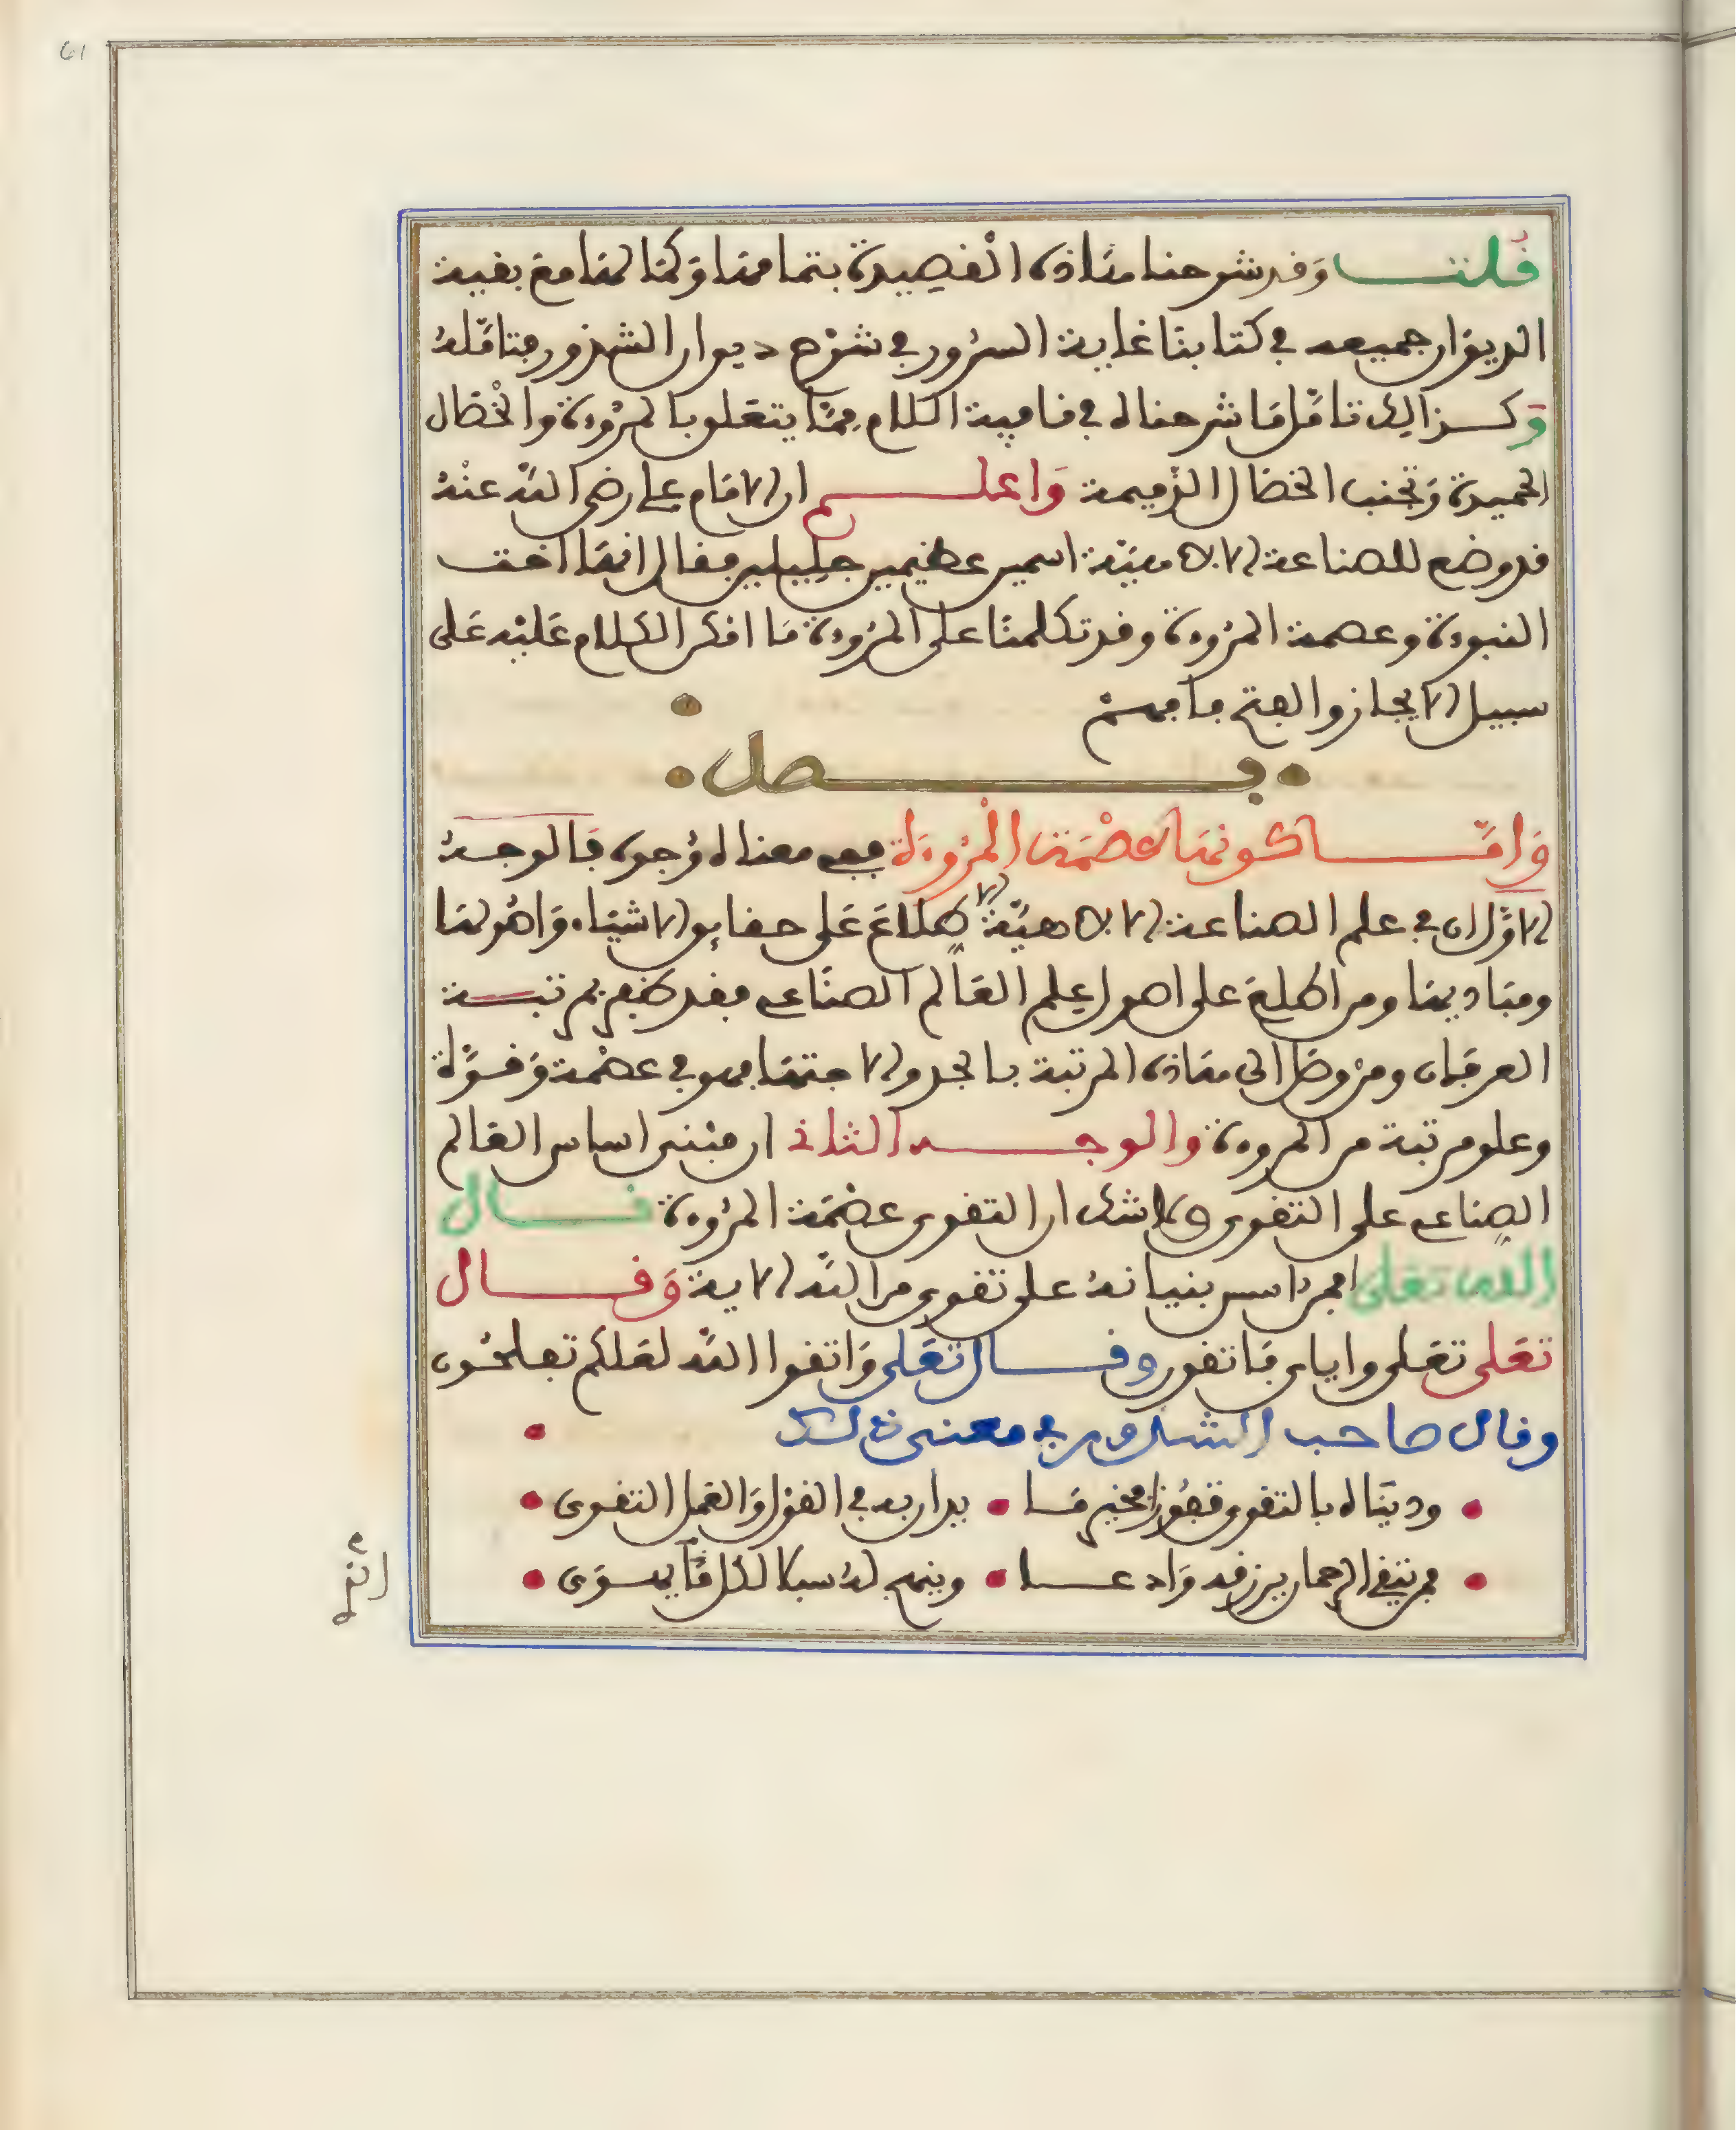 قلت وقد شرحنا هاذه القصيدة بتمامها وكمالها مع بقية
الديوان جميعه في كتابنا غاية السرور في شرح ديوان الشذور فتأمله
وكذالك تأمل ما شرحناه في قافية اللام مما يتعلق بالمروءة والخصال
الحميدة وتجنب الخصال الذميمة واعلم ان الامام علي رضي الله عنه
قد وضع للصناعة الالاهية اسمين عظيمين جليلين فقال انها اخت
النبوة وعصمة المروءة وقد تكلمنا على المروءة ما امكن الكلام عليه على
سبيل الايجاز والفتح فافهم
فصل
واما كونها عصمة المروءة ففي معناه وجوه فالوجه
الاول ان في علم الصناعة الالاهية الاطلاع على حقايق الاشياء واصولها
ومباديها ومن اطلع على اصول علم العالم الصناعي فقد ظفر بمرتبة
العرفان ومن وصل الى هاذه المرتبة بالجد والاجتهاد فهو في عصمة وقوة
وعلو مرتبة من المروءة والوجه الثاني ان مبنى اساس العالم
الصناعي على التقوى ولا شك ان التقوى عصمة المروءة قال
الله تعلى افمن اسس بنيانه على تقوى من الله الاية وقال
تعلى تعلى واياي فاتقون وقال تعلى واتقوا الله لعلكم تفلحون
وقال صاحب الشذور في معنى ذلك
• ودیناه بالتقوى • يدان به في القول والعمل التقوى •
• فمن يتق الرحمان يرزقه وادعا • وينهج له سبلا لكل ما يهوى •